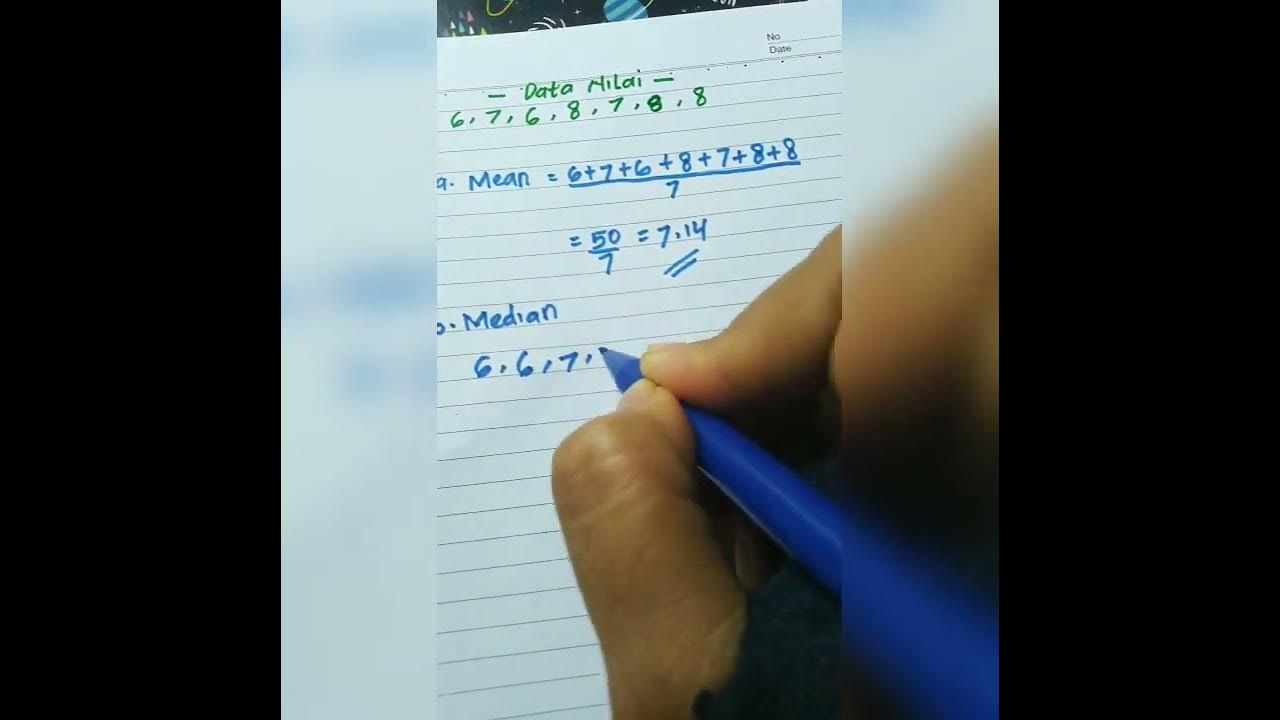 No
Date
— Data Nilai —
6, 7, 6, 8, 7, 8, 8
a. Mean = 6+7+6+8+7+8+8
7
= 50 = 7.14
7
b. Median
6, 6, 7,